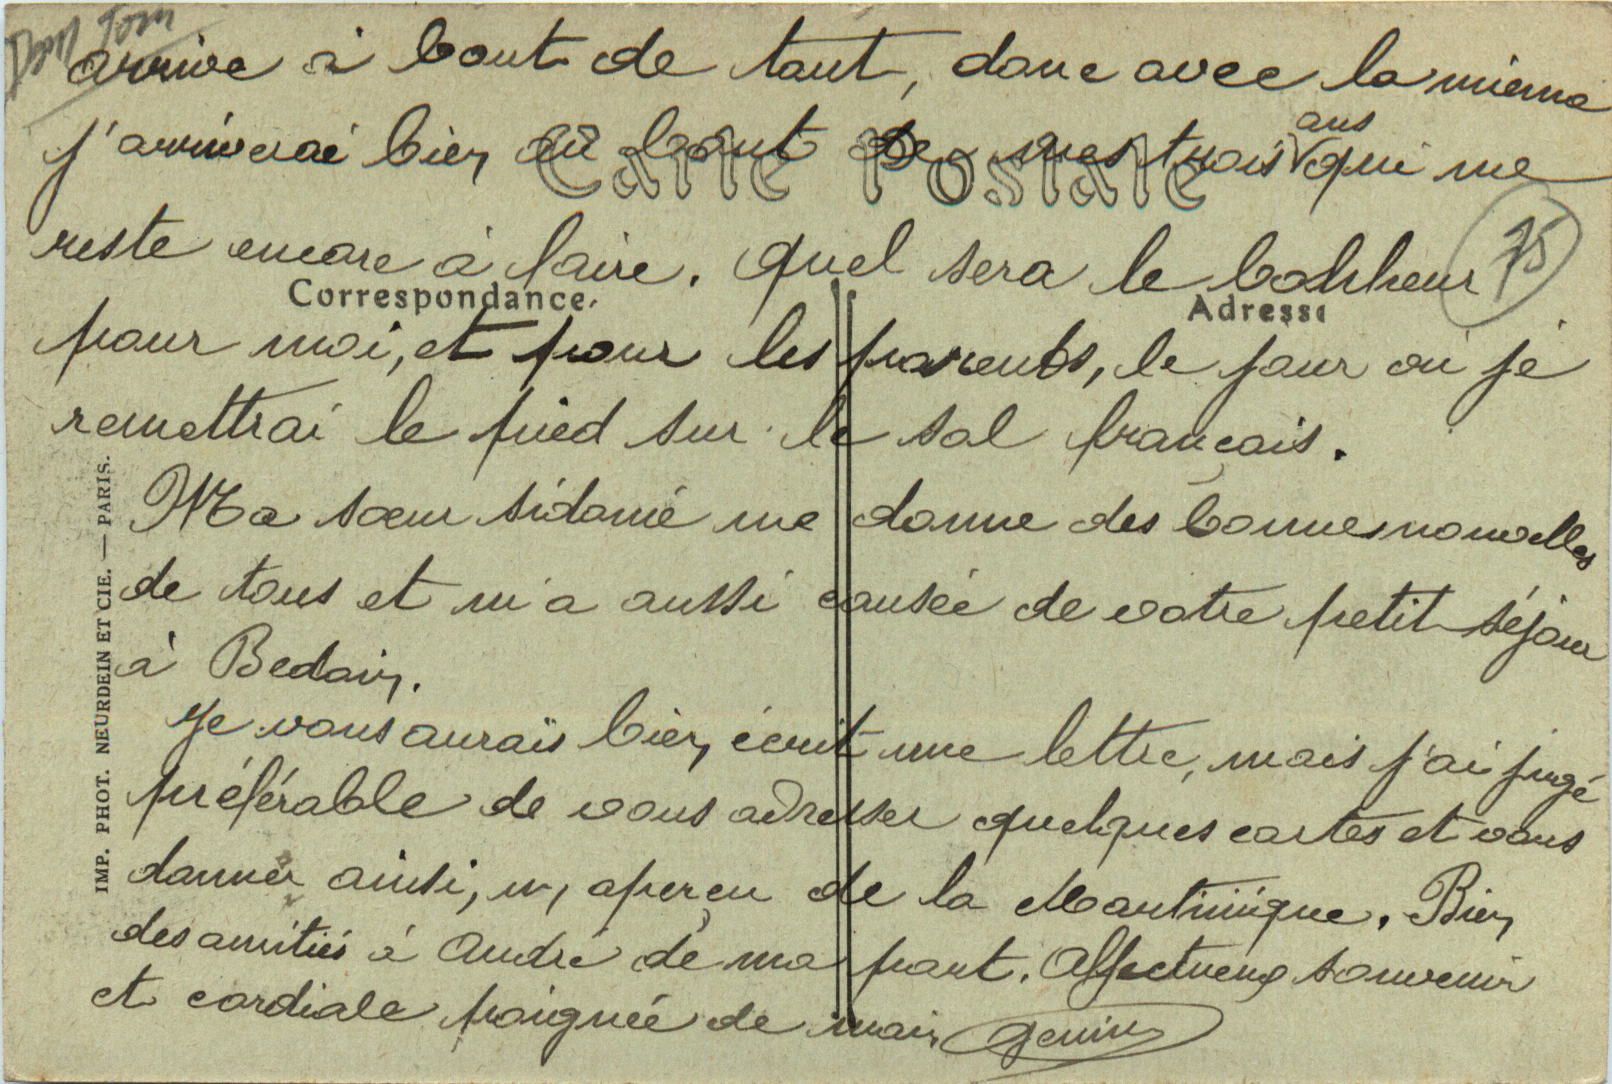 Dom Tom
arrive à bout de tout, donc avec la mienne
ans
j'arriverai bien au bout de mes trois qui me
Carte Postale
reste encore à faire. Quel sera le bonheur
75
Correspondance.
Adresse
pour moi, et pour les parents, le jour où je
remettrai le pied sur le sol français.
Ma sœur Sidonie me donne des bonnes nouvelles
de tous et m'a aussi causée de votre petit séjour
à Bedoin.
Je vous aurais bien écrit une lettre, mais j'ai jugé
préférable de vous adresser quelques cartes et vous
donner ainsi, un aperçu de la Martinique. Bien
des amitiés à André de ma part. Affectueux souvenir
et cordiale poignée de main Genin
IMP. PHOT. NEURDEIN ET CIE. — PARIS.